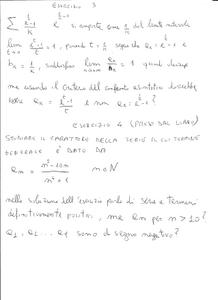 ESERCIZIO 3
∑ e^{1/k}-1 e^{1/k}-1 si comporta come 1/n del limite notevole
lim e^t-1/t = 1, prendo t = 1/n segue che an = e^{1/k}-1 e
bk = 1/k soddisfano lim an/bn = 1 quindi diverge
ma usando il criterio del confronto asintotico dovrebbe
an = e^{1/k}-1 e non an = e^{1/k}-1?
ESERCIZIO 4 (PRESO DAL LIBRO)
STUDIARE IL CARATTERE DELLA SERIE IL CUI TERMINE
GENERALE È DATO DA
an = n²-10n / n²+1 n∈N
nella soluzione dell'esercizio parla di serie a termini
definitivamente positivi, ma an per n > 10?
a1, a2 ... a9 sono di segno negativo?